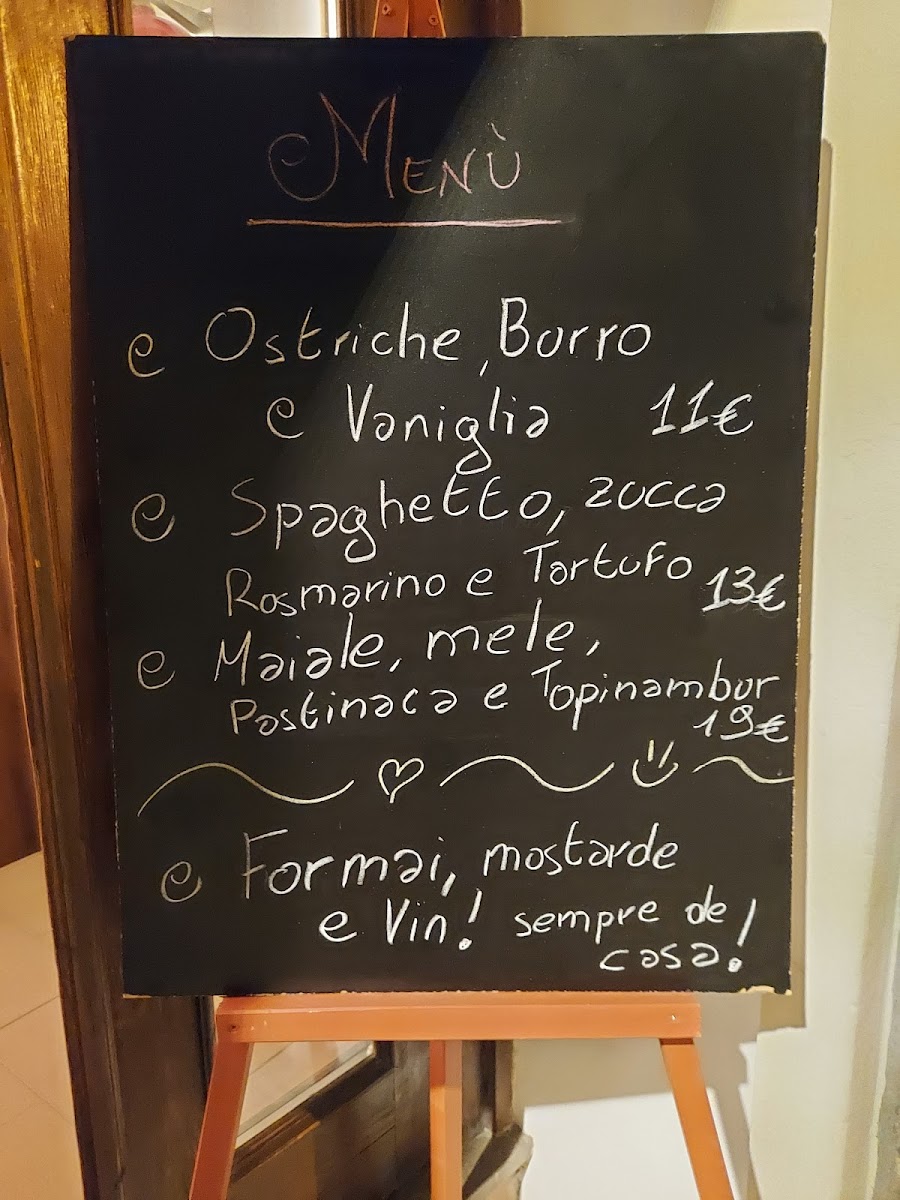 MENÙ
e Ostriche, Burro
e Vaniglia 11€
e Spaghetto, zucca
Rosmarino e Tartufo 13€
e Maiale, mele,
Pastinaca e Topinambur
19€
e Formai, mostarde
e Vin! sempre de
casa!